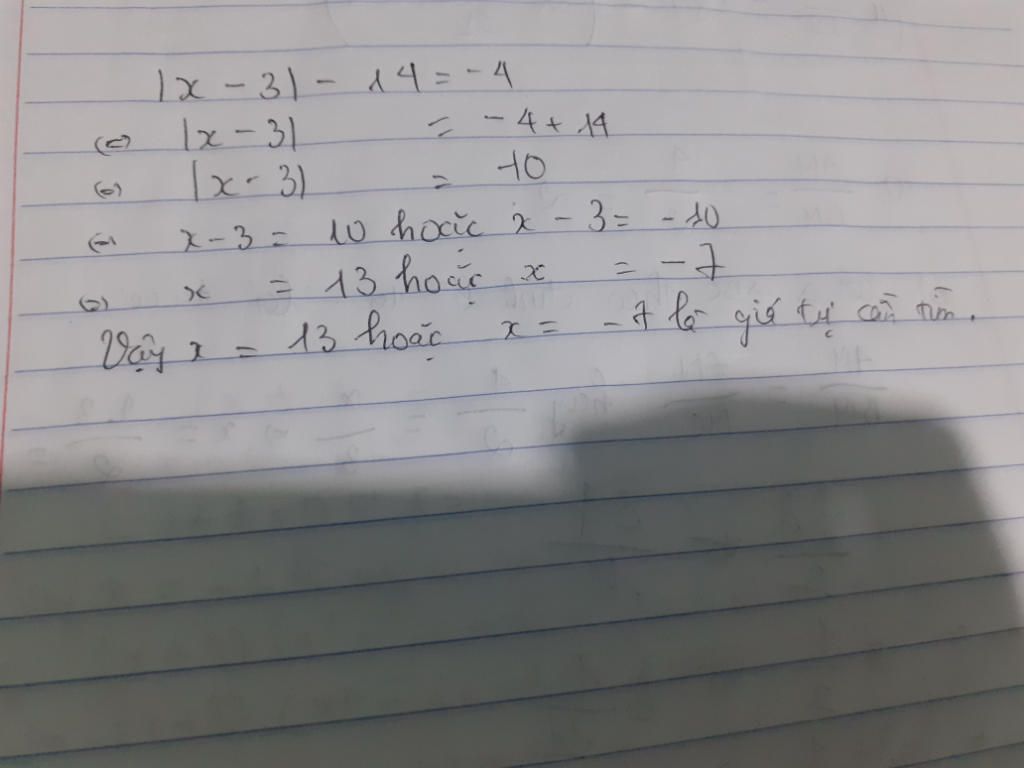 |x - 3| - 14 = -4
(=) |x - 3| = -4 + 14
(=) |x - 3| = 10
(=) x - 3 = 10 hoặc x - 3 = -10
(=) x = 13 hoặc x = -7
Vậy x = 13 hoặc x = -7 là giá trị cần tìm.